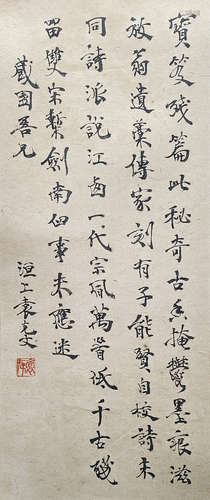 寶笈殘篇此秘奇古香掩鬱墨痕滋
放翁遺藁傳家刻有子能賢自校詩未
同詩派說江西一代宗風萬首低千古
留雙宋槧劍南事未應迷
藏園吾兄 洹上袁克文